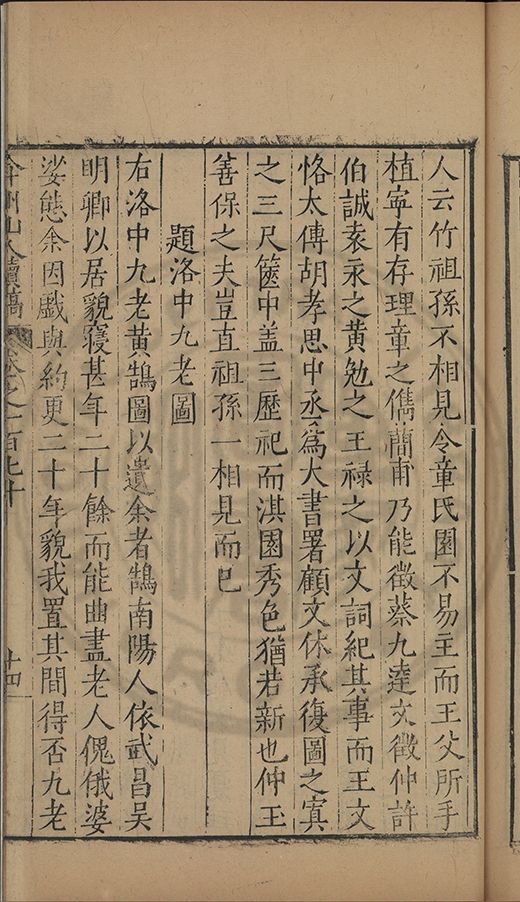 人云竹祖孫不相見令章氏園不易主而王父所手
植寧有存理章之儁蕳甫乃能徵蔡九逵文徵仲許
伯誠袁永之黄勉之王禄之以文詞紀其事而王文
恪太傅胡孝思中丞為大書署顧文休承復圖之寘
之三尺篋中盖三歷祀而淇園秀色猶若新也仲玉
善保之夫豈直祖孫一相見而已
題洛中九老圖
右洛中九老黄鵠圖以遺余者鵠南陽人依武昌吴
明卿以居貌寢甚年二十餘而能曲盡老人傀俄婆
娑態余因戲與約更二十年貌我置其間得否九老
弇州山人續稿 卷之一百七十 十四